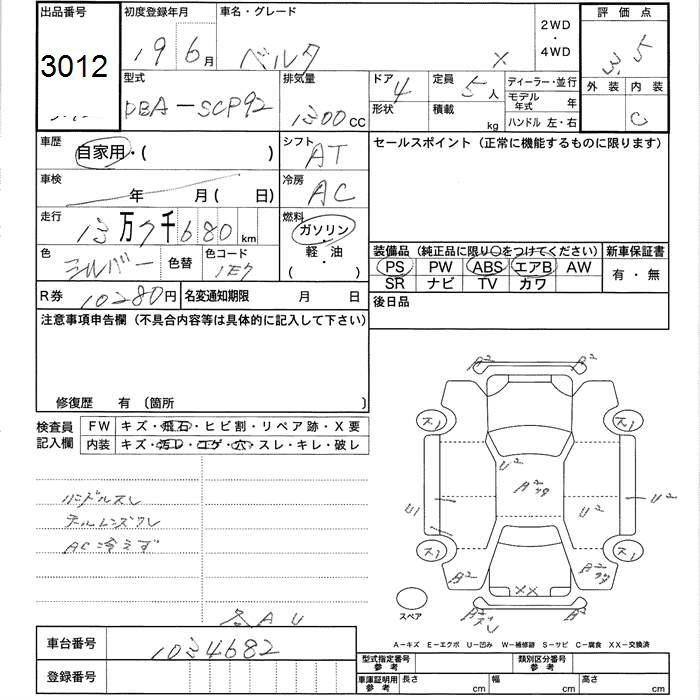 出品番号 初度登録年月 車名・グレード 2WD ・ 4WD 評価点
3012 19年6月 ベルタ X 3.5
型式 排気量 ドア 4 定員 5人 ディーラー・並行 外装 内装
DBA-SCP92 1300CC 形状 積載 kg モデル年式 年 C
ハンドル 左・右
車歴 自家用・( ) シフト AT セールスポイント(正常に機能するものに限ります)
車検 年 月( 日) 冷房 AC
走行 13万7千680km 燃料 ガソリン・軽・油・( )
色 シルバー 色替 色コード
装備品(純正品に限り○をつけてください) 新車保証書
PS PW ABS エアB AW 有・無
SR ナビ TV カワ
R券 10280円 名変通知期限 月 日 後日品
注意事項申告欄(不具合内容等は具体的に記入して下さい)
修復歴 有 〔箇所 〕
検査員記入欄 FW キズ・飛石・ヒビ割・リペア跡・X要
内装 キズ・汚レ・コゲ・穴・スレ・キレ・破レ
ハンドルスレ
テールレンズワレ
AC冷えず
各AU
A² A²
U²
A²
U1 U² U²
A² A²
XX
A² A²
スペア
A-キズ E-エクボ U-凹み W-補修跡 S-サビ C-腐食 XX-交換済
車台番号 1034682
登録番号
型式指定番号 参考 類別区分番号 参考
車庫証明用 参考 長さ cm 幅 cm 高さ cm